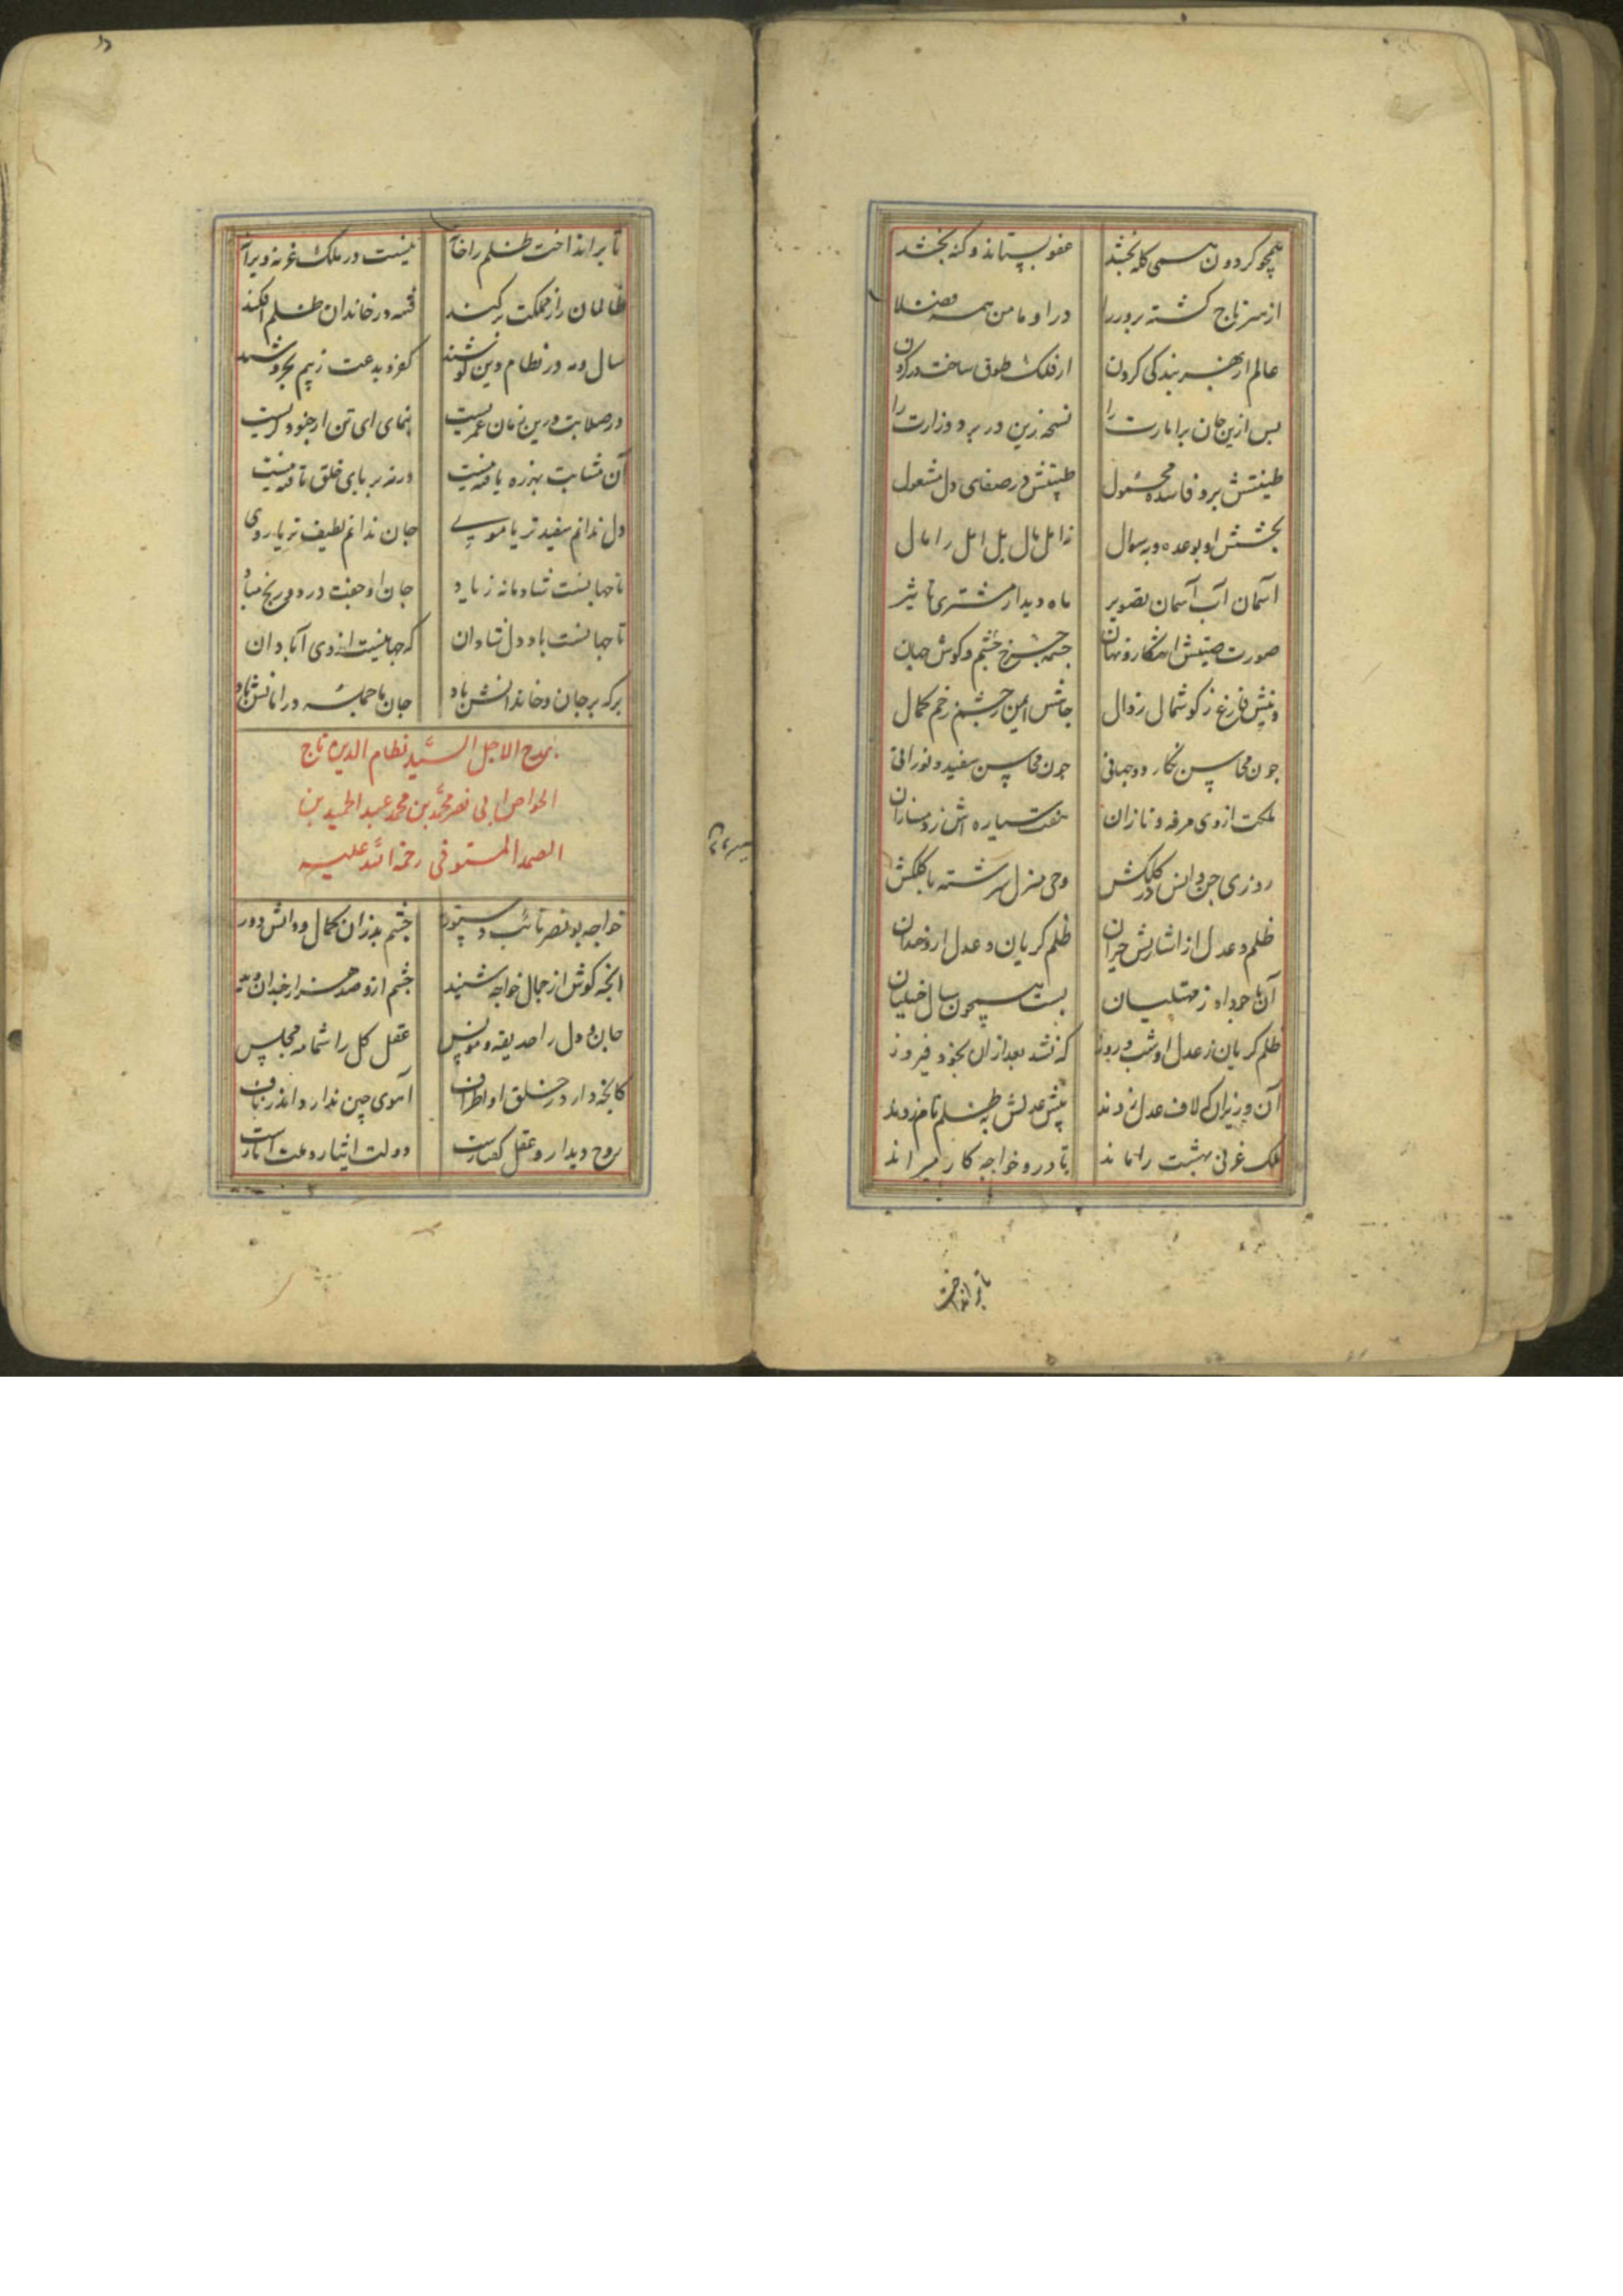 همچو کردون همی کله بخشد عفو بستاند و کنه بخشد
از سر تاج کشته برور را در او مامن همه فضلا
عالم از بهر بندکی کردن از فلک طوق ساخت در کردن
بس ازین جان برامارت را نسخه زین در برد وزارت را
طینتش بر وفا شده مجبول طینتش در صفای دل مشغول
بخشش او بوعده و به سوال نه امل مال بل امل را مال
آسمان آب آسمان تصویر ماه دیدار مشتری تاثیر
صورت صیتش آشکار و نهان چشمه چرخ چشم و کوش جهان
دینش فارغ ز کوشمال زوال جانش ایمن ز چشم زخم کمال
جون محاسن نکار دوجهانی جون محاسن سفید و نورانی
ملکت از وی مرفه و نازان هفت سیاره اش ز دمسازان
روزی جن و انس در کلکش وحی منزل سرشته با کلکش
ظلم و عدل از اشارتش حیران ظلم کریان و عدل ازو خندان
آن باجود او ز مهتلبیان بست همچون سال خیلیان
ظلم کریان ز عدل او شب و روز که نشد بعد ازان بخود فیروز
آن وزیران که لاف عدل زدند پیش عدلش به ظلم نامزدند
ملک غزنی بهشت را ماند تا درو خواجه کار میراند
تا بر انداخت
تا برانداخت ظلم را خانه نیست در ملک غزنه ویرانه
ظالمان را ز مملکت برکند فتنه در خاندان ظلم افکند
سال و مه در نظام دین کوشند کفر و بدعت ز بیم بخروشند
در صلابت درین زمان عمریست بنمای ای تن ار جنو دکریست
آن مشابت بهزره یافته نیست ورنه بر پای خلق تافته نیست
دل ندانم سفیدتر یا موی جان ندانم لطیف تر یا روی
تا جهانست شادمانه زیاد جان او جفت درد و رنج مباد
تا جهانست باد دل شادان که جهانیست از وی آبادان
برکه بر جان و خاندانش باد جان ما جمله در امانش باد
بمدح الاجل السید نظام الدین تاج
الخواص ابی نصر محمد بن محمد عبد الحمید بن
الصمد المستوفی رحمة الله علیه
خواجه بونصر نائب دستور چشم بد زان کمال و دانش دور
انجه کوش از جمال خواجه شنید چشم ازو صد هزار چندان دید
جان و دل را حدیقه و مونس عقل کل را شمامه مجلس
کانجه دارد ز خلق او اطراف آهوی چین ندارد اندر ناف
روح دیدار و عقل کفتارست دولت ایثار و ملت آثارست